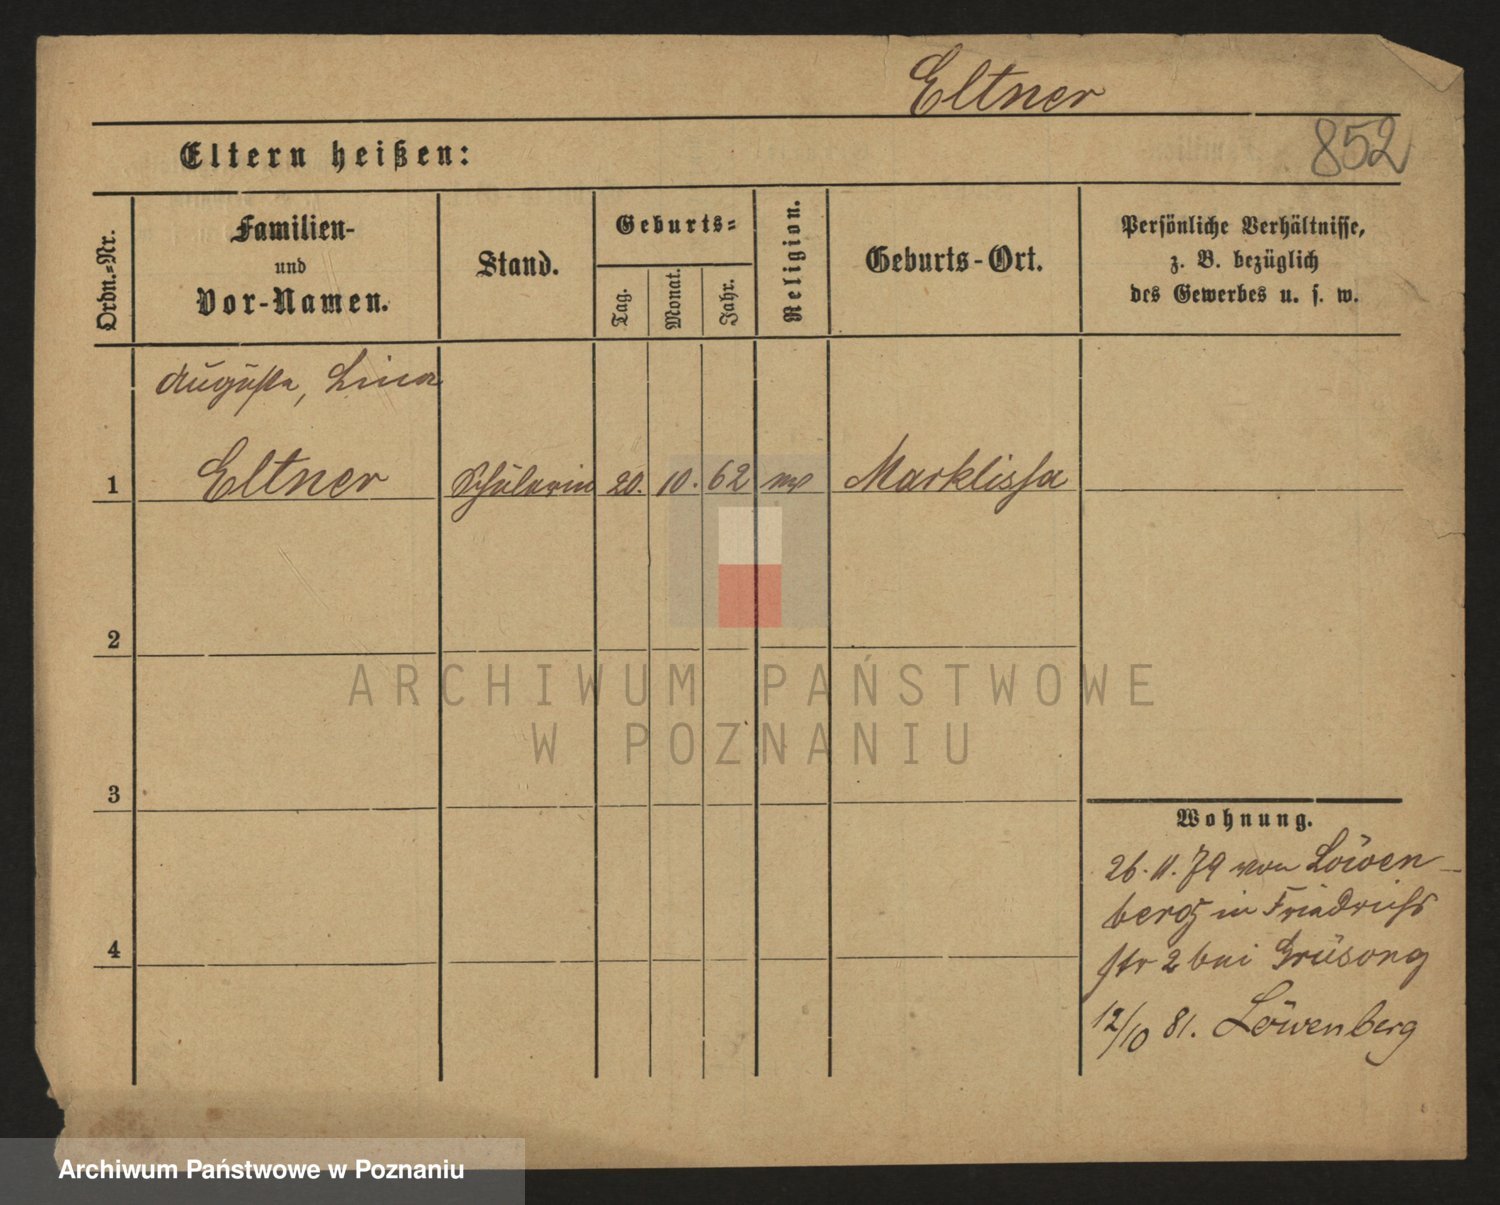 Eltner
852
Eltern heißen:
Ordn.=Nr.
Familien-
und
Vor-Namen.
Stand.
Geburts=
Tag.
Monat.
Jahr.
Religion.
Geburts-Ort.
Persönliche Verhältnisse,
z. B. bezüglich
des Gewerbes u. s. w.
Auguste, Lina
1 Eltner Schülerin 20. 10. 62 ev Marklissa
2
3
4
Wohnung.
26. 11. 79 von Löwen-
berg in Friedrichs
str 2 bei
12/10 81. Löwenberg
ARCHIWUM PAŃSTWOWE
W POZNANIU
Archiwum Państwowe w Poznaniu